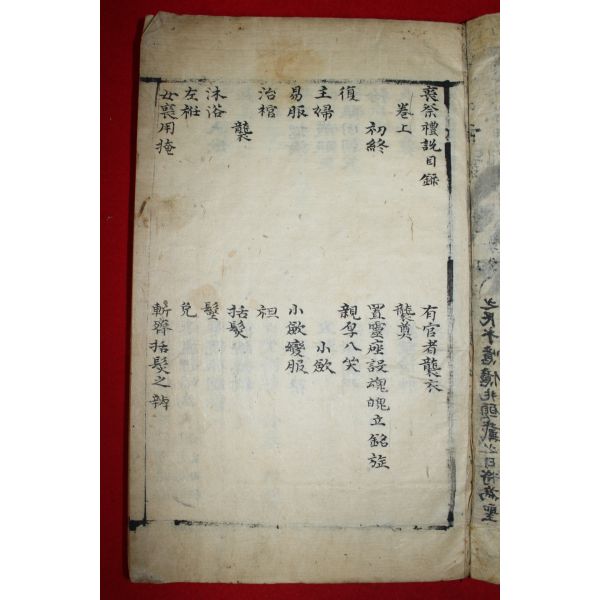 喪祭禮說目錄
卷上
初終
復
主婦
易服
治棺
襲
沐浴
左衽
女喪用掩
有官者襲衣
襲奠
置靈座設魂魄立銘旌
小歛
親身入哭
小歛變服
袒
括髮
髽
免
斬齊括髮之辨